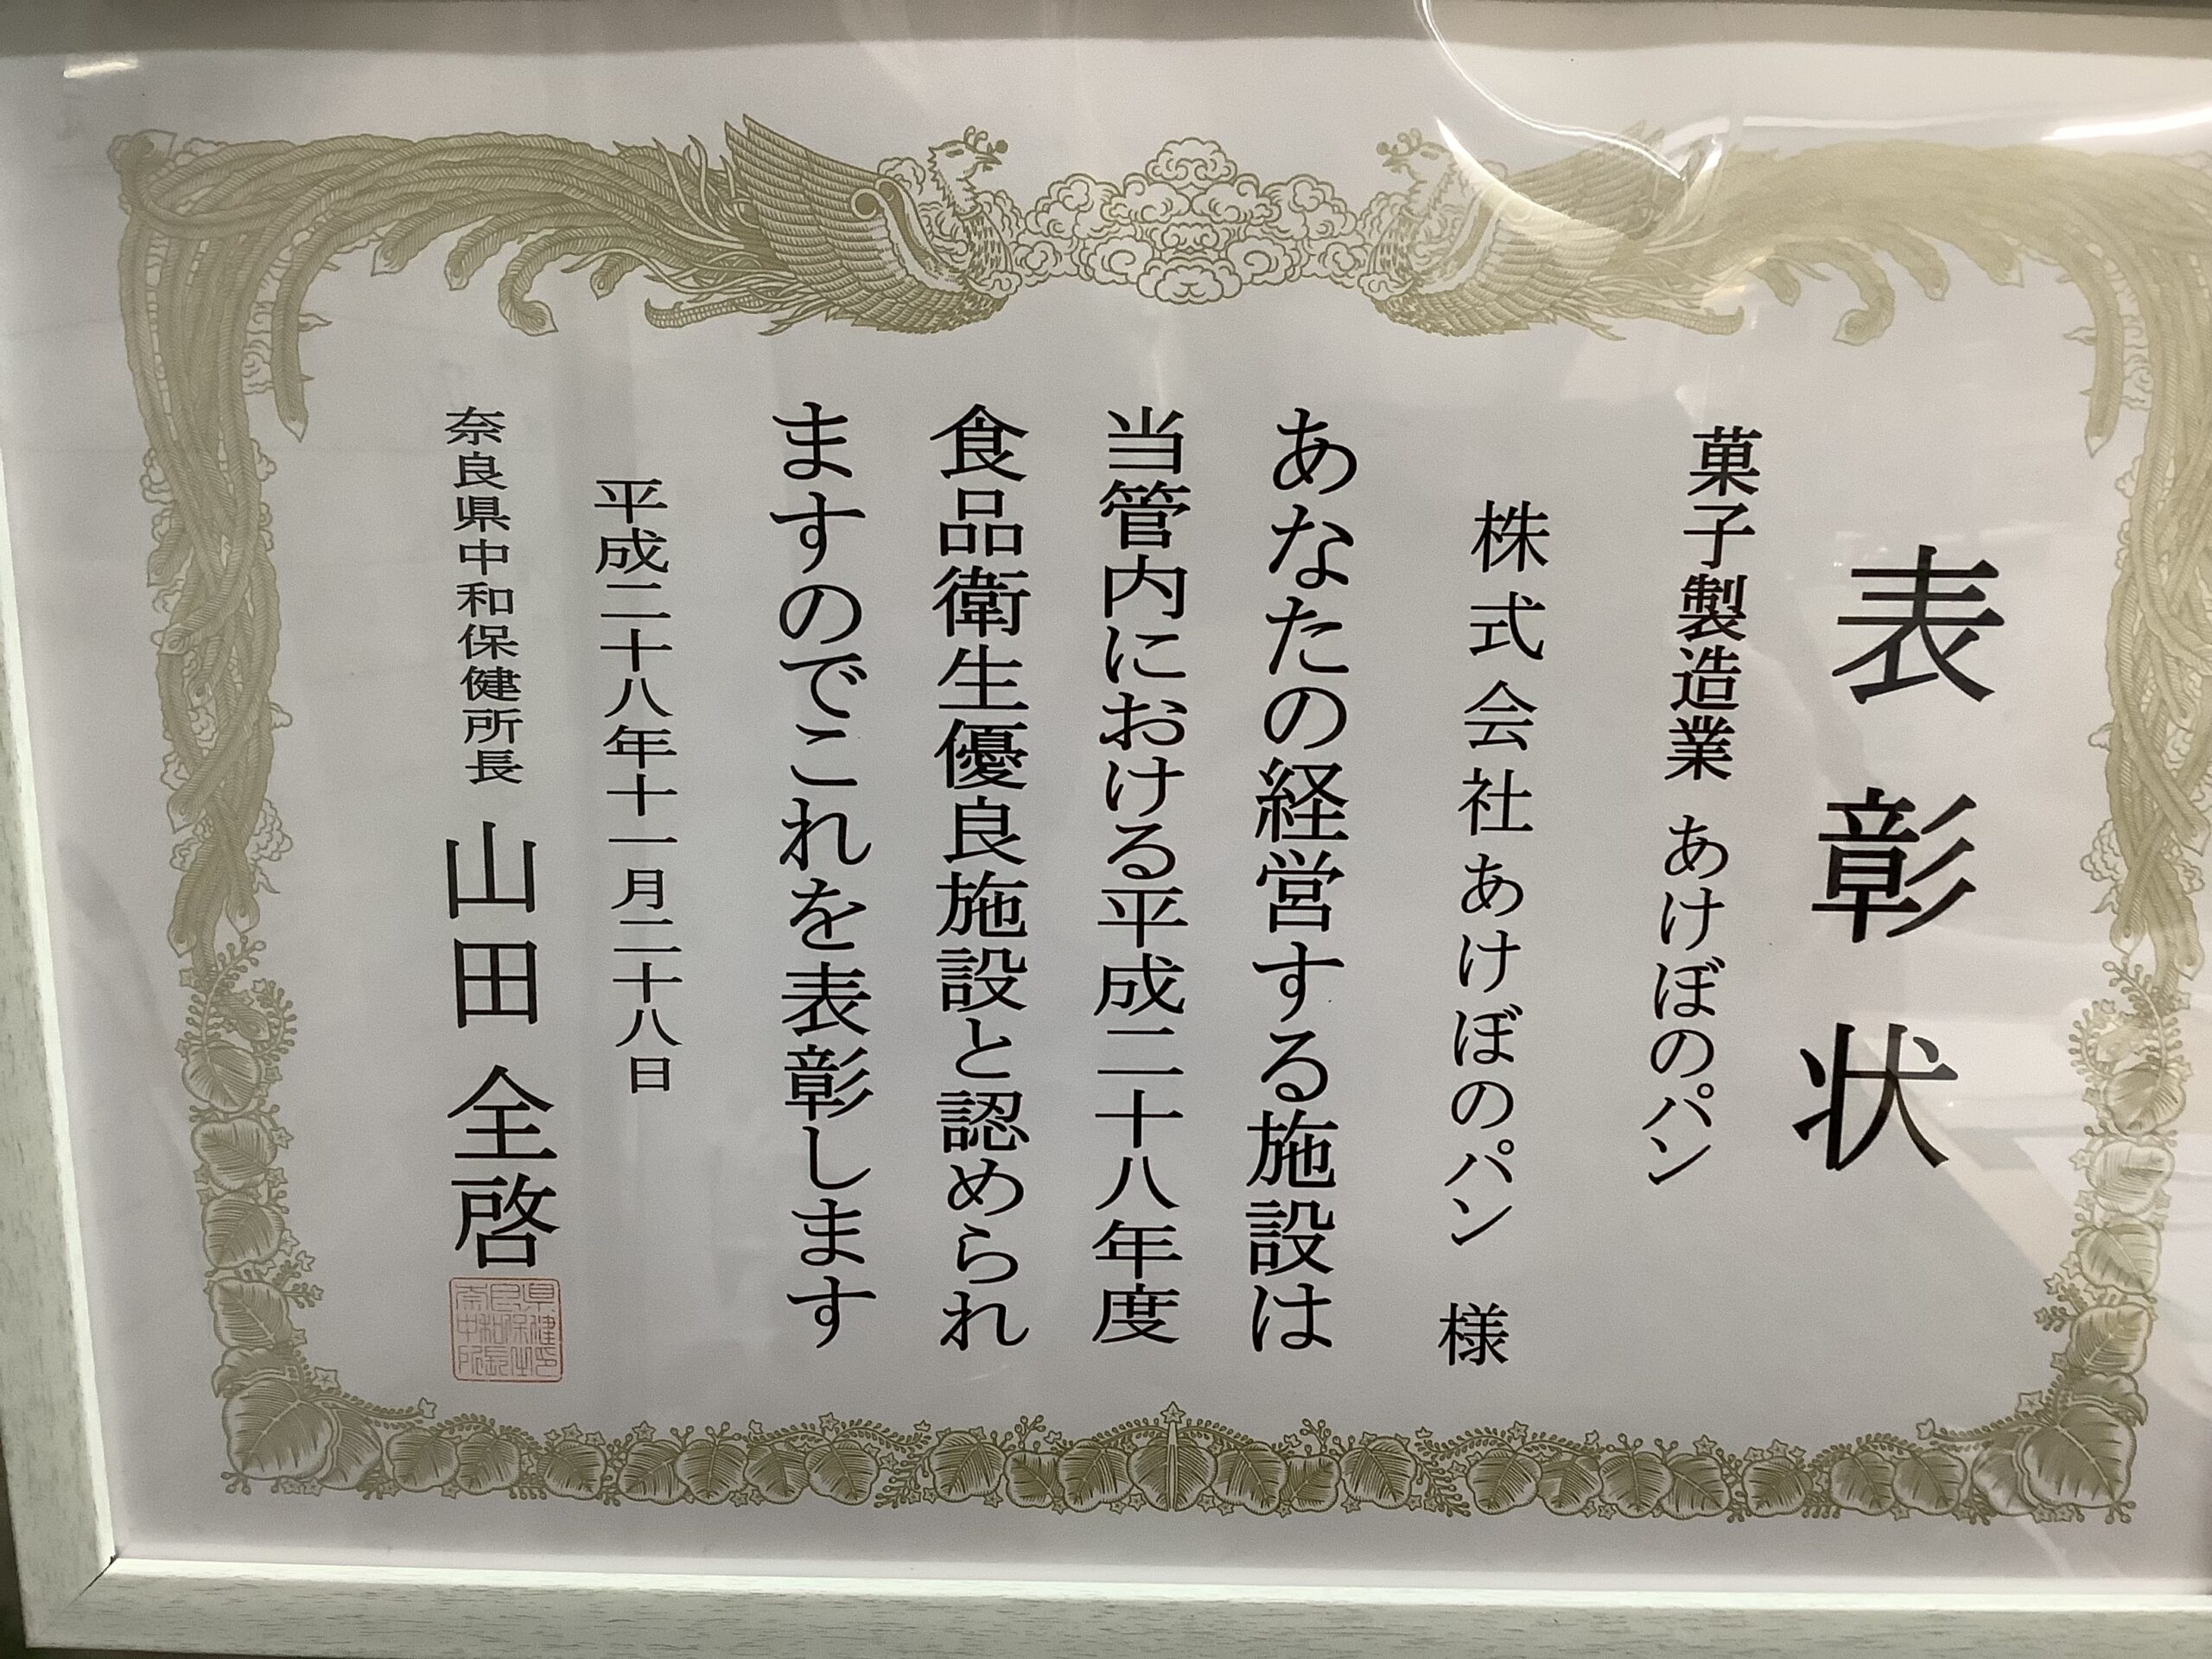 表彰状
菓子製造業 あけぼのパン
株式会社あけぼのパン 様
あなたの経営する施設は
当管内における平成二十八年度
食品衛生優良施設と認められ
ますのでこれを表彰します
平成二十八年十一月二十八日
奈良県中和保健所長 山田全啓